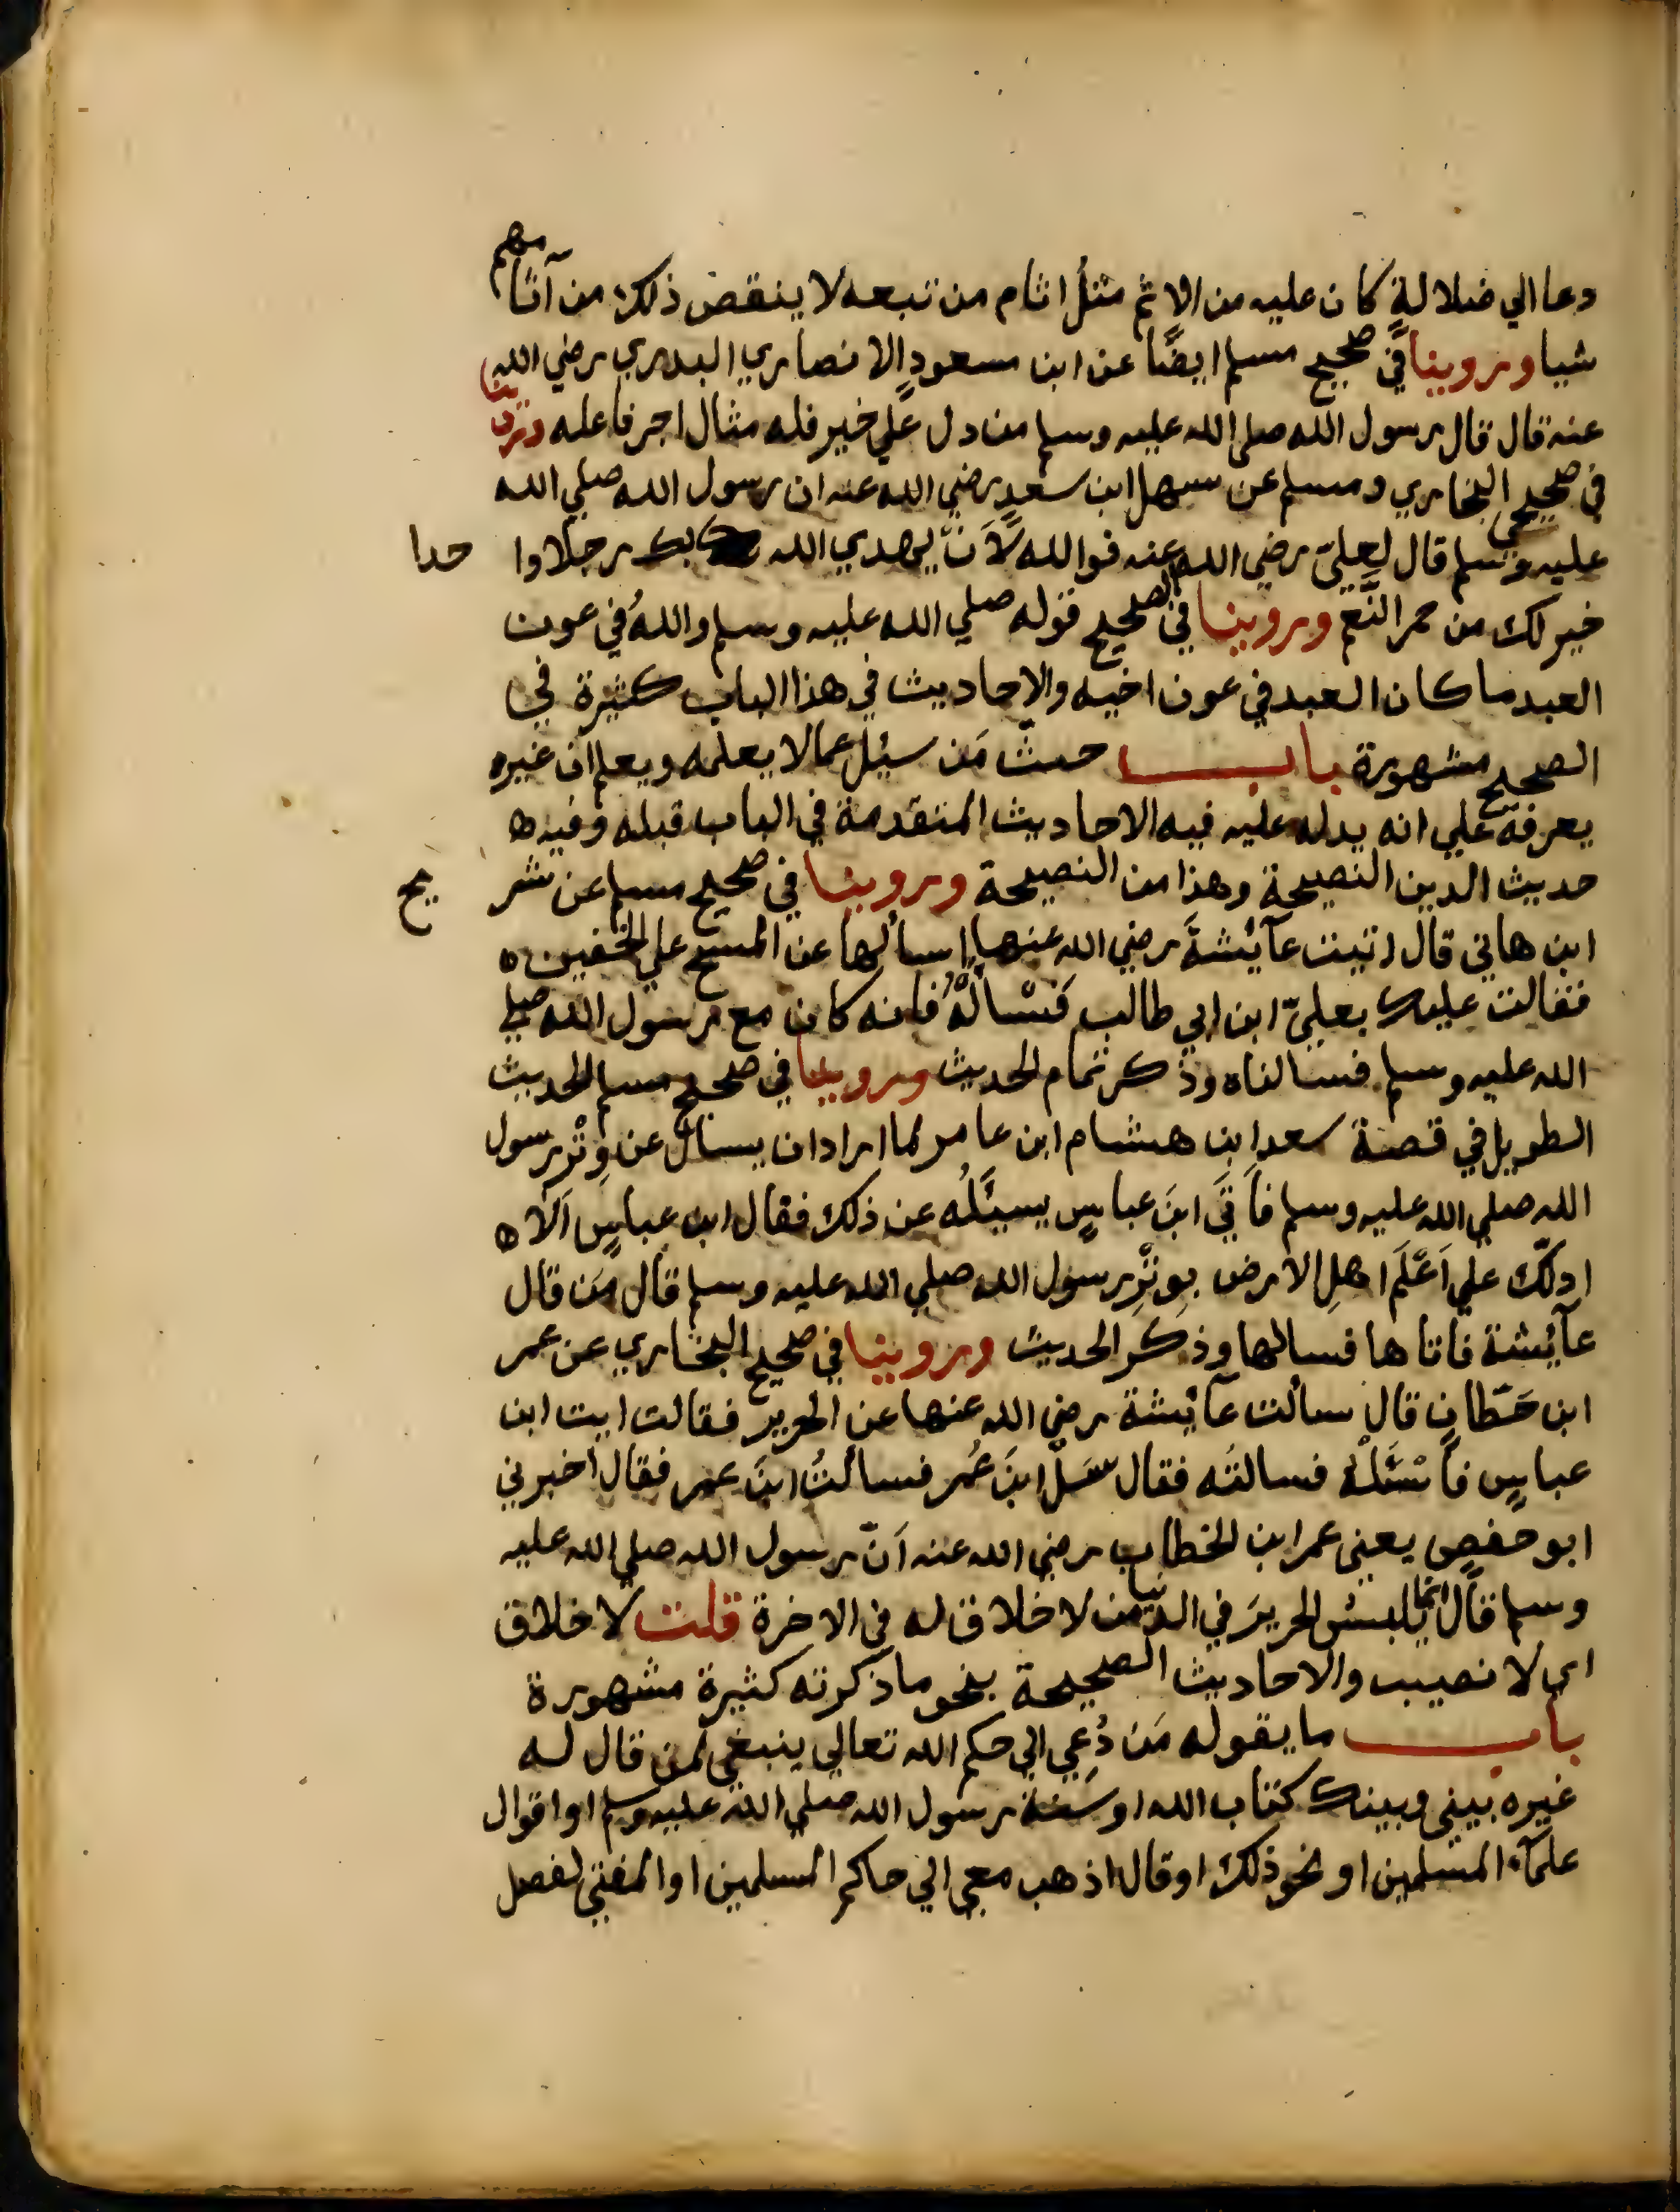 دعا الي ضلالةٍ كان عليه من الاثم مثلُ اثام من تبعه لا ينقص ذلك من آثامهم
شيا وروينا في صحيح مسلم ايضًا عن ابن مسعودٍ الانصاري البدري رضي الله
عنه قال قال رسول الله صلى الله عليه وسلم من دل علي خير فله مثال اجر فاعله وروينا
في صحيحي البخاري ومسلم عن سهل ابن سعدٍ رضي الله عنه ان رسول الله صلي الله
عليه وسلم قال لعليّ رضي الله عنه فوالله لَاَنْ يهدي الله بك رجلاوا حدا
خير لك من حمر النَّعم وروينا في الصحيح قوله صلي الله عليه وسلم واللهُ في عون
العبد ما كان العبد في عون اخيه والاحاديث في هذا الباب كثيرة في
الصحيح مشهورة باب حث مَن سئِل عما لا يعلمه ويعلم ان غيره
يعرفه علي انه يدله عليه فيه الاحاديث المتقدمة في الباب قبله وفيه ه
حديث الدين النصيحة وهذا من النصيحة وروينا في صحيح مسلم عن شر يح
ابن هاني قال اتيت عآئشةَ رضي الله عنها اسألها عن المسح علي الخفين ه
فقالت عليك بعليّ ابن ابي طالب فَسْألْهُ فانه كان مع رسول الله صلي
الله عليه وسلم فسالناه وذكر تمام الحديث وروينا في صحيح مسلم الحديث
الطويل في قصة سعد ابن هشام ابن عامر لما اراد ان يسال عن وِتْر رسول
الله صلي الله عليه وسلم فاَتَي ابنَ عباسٍ يسئَلُه عن ذلك فقال ابن عباسٍ اَلَا ه
ادلّك علي اَعْلَم اهلِ الارض بوِتْرِ رسول الله صلي الله عليه وسلم قال مَن قال
عآئِشة فاتاها فسالها وذكر الحديث وروينا في صحيح البخاري عن عمر
ابن حَطّان قال سألت عآئِشة رضي الله عنها عن الحرير فقالت ايت ابن
عباسٍ فاسْئَلْهُ فسالته فقال سَلْ ابنَ عُمر فسألتُ ابنَ عمر فقال اخبرني
ابو حفصٍ يعني عمر ابن الخطاب رضي الله عنه اَنّ رسول الله صلي الله عليه
وسلم قال انما يلبس الحريرَ في الدنيا من لا خلاق له في الاخرة قلت لا خلاق
اي لا نصيب والاحاديث الصحيحة بنحو ما ذكرته كثيرة مشهورة
باب ما يقوله مَن دُعِي الي حكم الله تعالي ينبغي لمن قال له
غيره بيني وبينك كتاب الله او سنة رسول الله صلي الله عليه وسلم او اقوال
علمآء المسلمين او نحو ذلك او قال اذهب معي الي حاكم المسلمين او المفتي لفصل